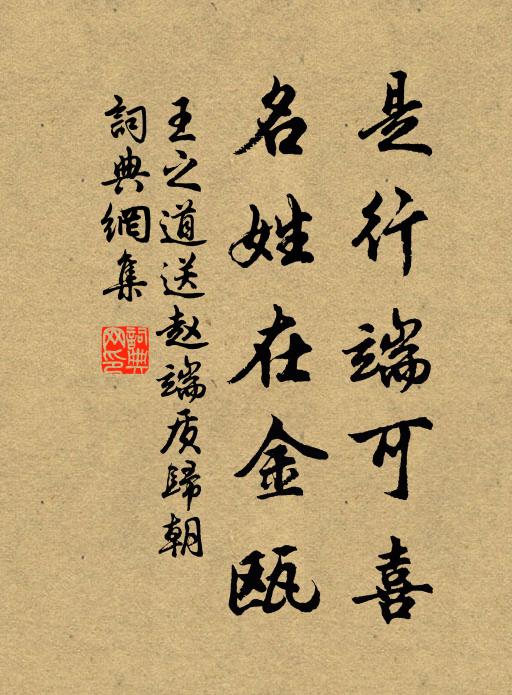 是行端可喜
名姓在金瓯
王之道送赵端质歸朝
詞典網集
詞典網印